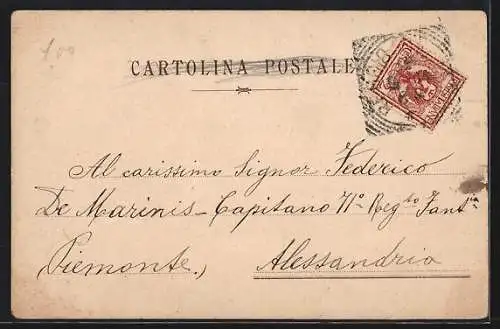 100
CARTOLINA POSTALE
Al carissimo Signor Federico
De Marinis - Capitano 71º Reg.to Fant.ia
Piemonte,) Alessandria